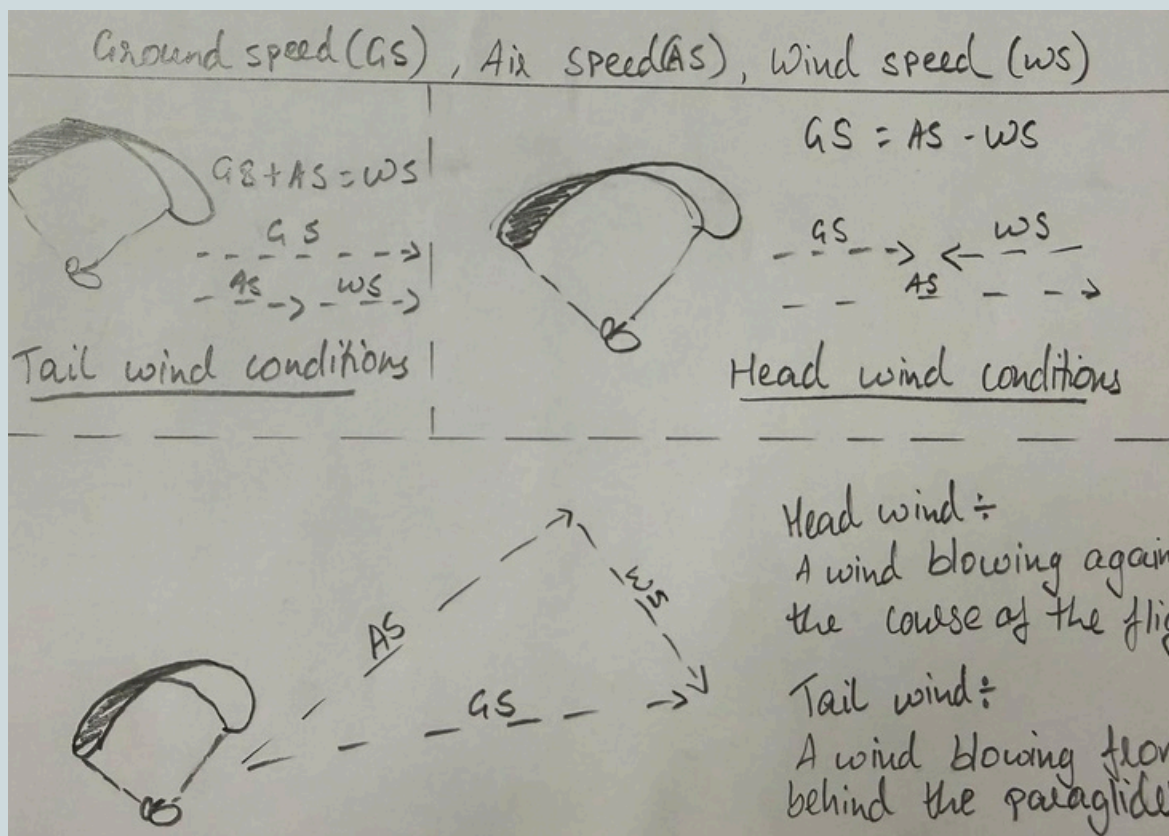 Ground speed (GS), Air speed (AS), Wind speed (WS)
GS+AS=WS
GS
AS WS
Tail wind conditions
GS = AS - WS
GS WS
AS
Head wind conditions
AS
WS
GS
Head wind÷
A wind blowing again
the course of the flig
Tail wind÷
A wind blowing from
behind the paraglide